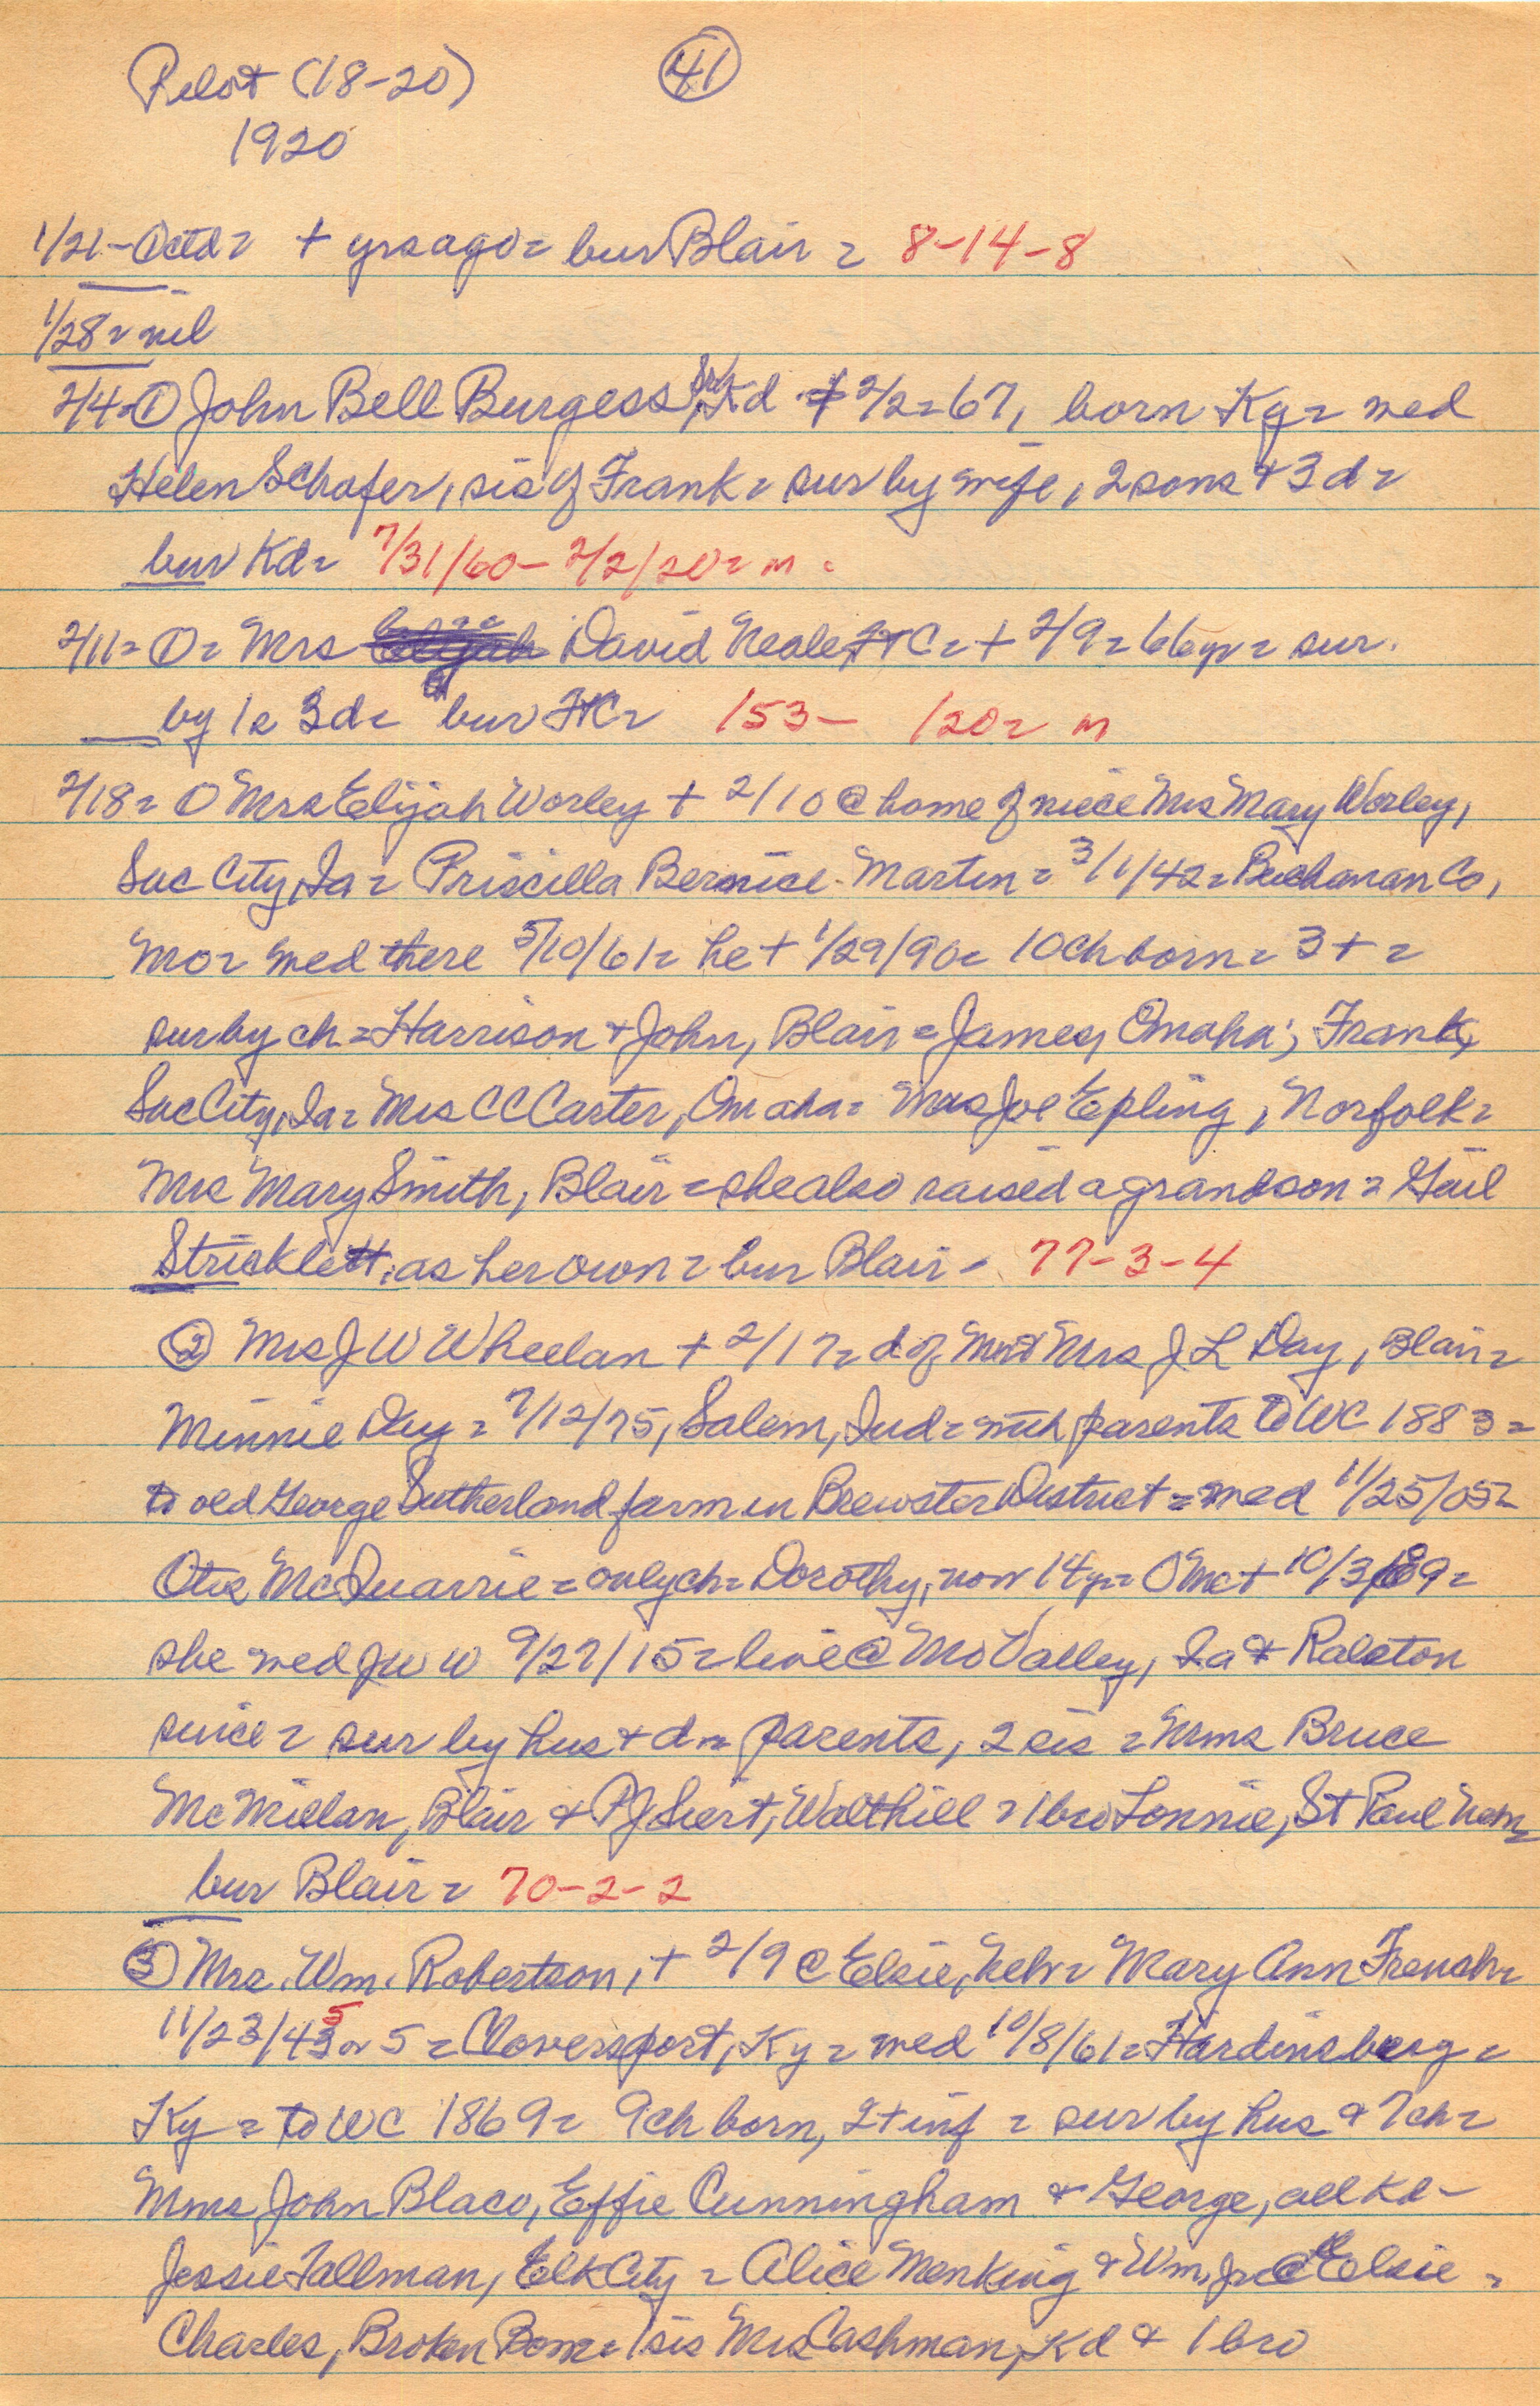 Pilot (18-20) 41
1920
1/21 - Octd = + yrs ago = bur Blair = 8-14-8
1/28 = nil
2/4 = ① John Bell Burgess, Sr, Kd + 2/2 = 67, born Ky = med
Helen Schafer, sis of Frank = sur by wife, 2 sons + 3 d =
bur Kd = 7/31/60 - 2/2/20 = m
2/11 = ① = Mrs David Neale FtC = + 2/9 = 66 yr = sur.
by 1s 3d = bur FtC = 153 - 120 = m
2/18 = ① Mrs Elijah Worley + 2/10 @ home of niece Mrs Mary Worley,
Sac City, Ia = Priscilla Bernice Martin = 3/1/42 = Buchanan Co,
Mo = med there 5/10/61 = he + 1/29/90 = 10 ch born = 3 + =
sur by ch = Harrison + John, Blair = James, Omaha; Frank,
Sac City, Ia = Mrs C C Carter, Omaha = Mrs Joe Epling, Norfolk =
Mrs Mary Smith, Blair = she also raised a grandson = Gail
Stricklett, as her own = bur Blair - 77-3-4
② Mrs J W Wheelan + 2/17 = d of Mr + Mrs J L Day, Blair =
Minnie Day = 7/12/75, Salem, Ind = with parents to WC 1883 =
to old George Sutherland farm in Brewster District = med 11/25/05 =
Otis McQuarrie = only ch = Dorothy, now 14 yr = O Mc + 10/3/09 =
she med J W W 9/27/15 = live @ Mo Valley, Ia + Ralston
since = sur by hus + d = parents, 2 sis = Mms Bruce
McMillan, Blair + P J Siert, Walthill = 1 bro Lonnie, St Paul Neb =
bur Blair = 70-2-2
③ Mrs. Wm. Robertson, + 2/9 @ Elsie, Neb = Mary Ann French =
11/23/43 or 5 5 = Cloversport, Ky = med 10/8/61 = Hardinsburg =
Ky = to WC 1869 = 9 ch born, 2 + inf = sur by hus + 7 ch =
Mms John Blaco, Effie Cunningham + George, all Kd -
Jessie Tallman, Elk City = Alice Menking + Wm, Jr @ Elsie =
Charles, Broken Bow = 1 sis Mrs Cashman, Kd + 1 bro